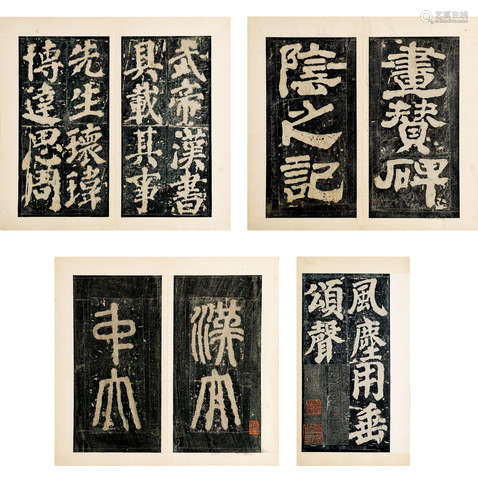 武帝漢書
具載其事
先生瓌瑋
博達思周
畫贊碑
陰之記
漢大
中大
風塵用垂
頌聲